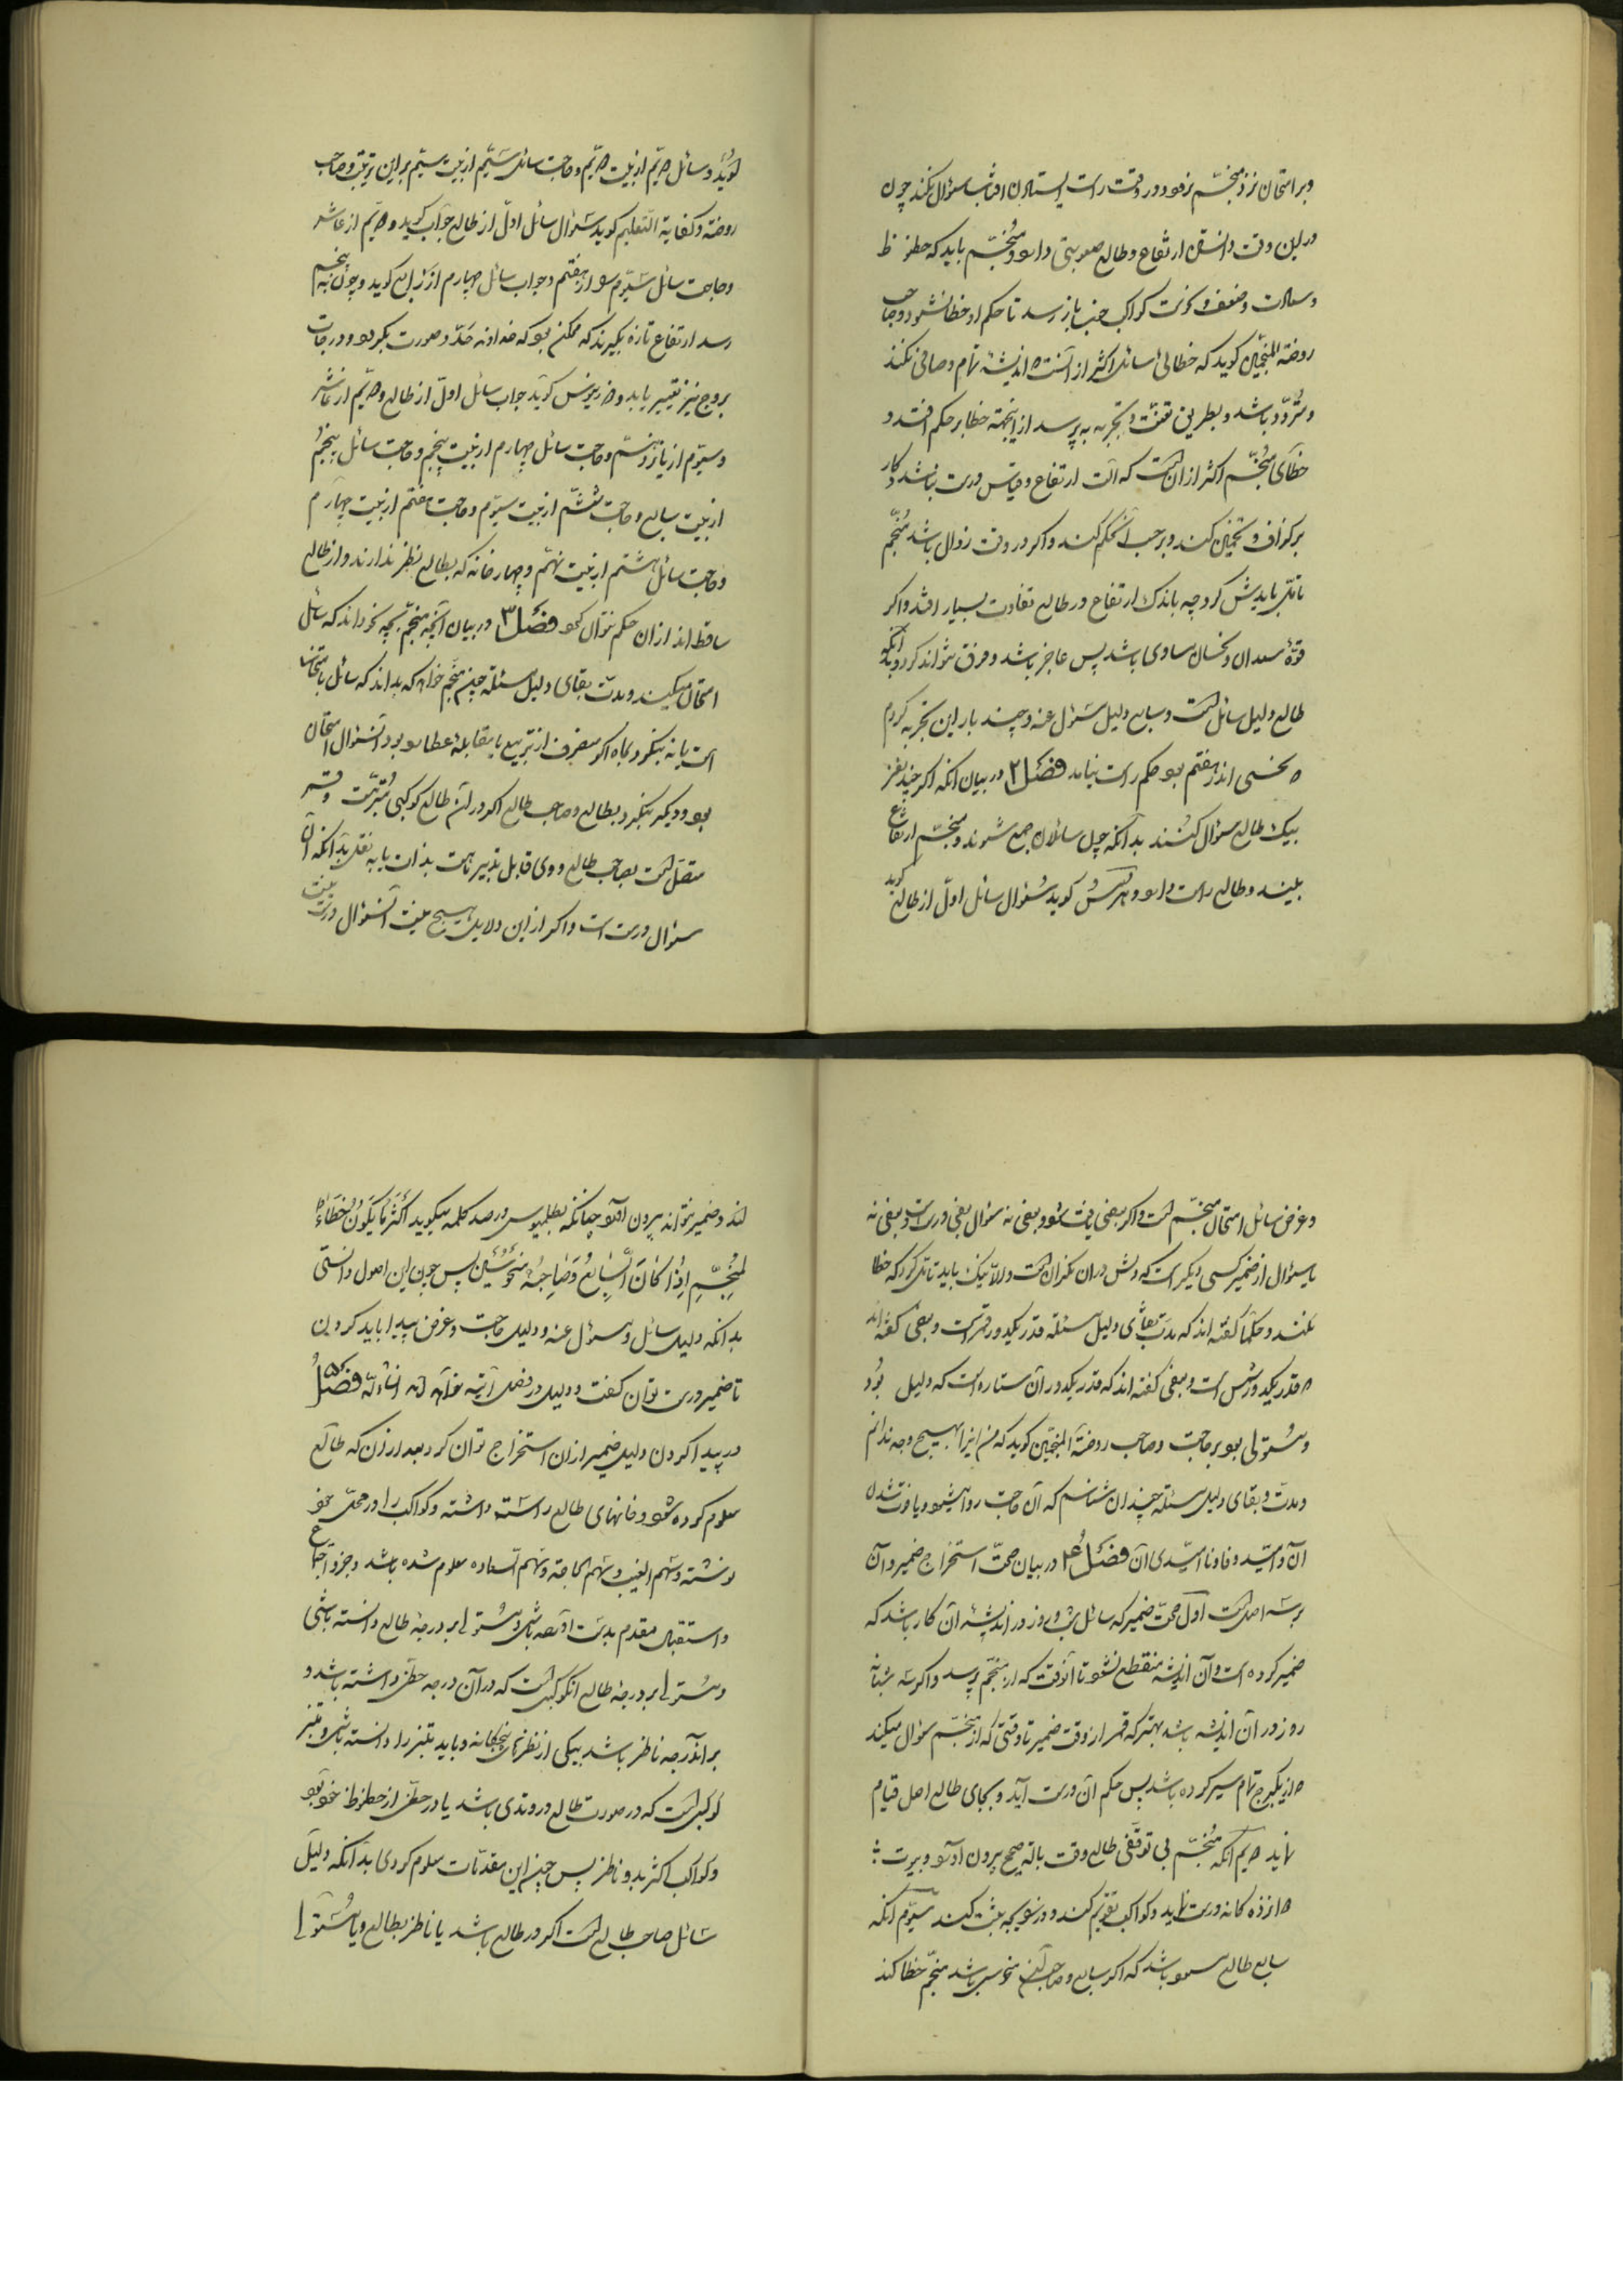 وبر امتحان نزد منجّم نرود ودر وقت راست ایستادن افتاب سؤال نکند چون
در این وقت دانستن ارتفاع وطالع صعوبتی دارد ومنجّم باید که حظوظ
وسعادت وضعف وقوت کواکب خبر باز رسد تا حکم او خطا نشود وصاحب
روضة المنجّمین کوید که خطائی سائل اکثر از آنست که اندیشه تمام وصافی نکند
ومتردّد باشد وبطریق تعنّت وتجربه به پرسد از اینجهة خطا بر حکم افتد و
خطای منجّم اکثر از ان است که آلت ارتفاع وقیاس درست نباشد وکار
بر کزاف وتخمین کند وبر حسب آن حکم کند واکر در وقت زوال باشد منجّم
تأمّل بایدش کرد چه باندک ارتفاع در طالع تفاوت بسیار افتد واکر
قوّة سعدان ونحسان مساوی باشد پس عاجز باشد وفرق نتواند کرد وبدانکه
طالع دلیل سائل است وسابع دلیل مسؤل عنه وچند بار این تجربه کردم
که نحسی اندر هفتم بود حکم راست نیامد فصل ۲ در بیان آنکه اکر چند نفر
بیک طالع سؤال کنند بدانکه چون سائلان جمع شوند ومنجّم ارتفاع
بیند وطالع راست دارد وهر کس کوید سؤال سائل اوّل از طالع کوید
کوید وسائل دویّم از بیت دویّم وحاجت سائل سیّم از بیت سیّم بر این ترتیب وصاحب
روضه وکفایة التّعلیم کوید سؤال سائل اوّل از طالع جواب کوید ودویّم از عاشر
وحاجت سائل سیّوم از هفتم وجواب سائل چهارم از رابع کوید وچون به پنجم
رسد ارتفاع تازه بکیرند که ممکن بود که خداوند حدّ وصورت بکردد ودرجات
بروج نیز تغییر یابد و کوید جواب سائل اوّل از طالع ودویّم از عاشر
وسیّوم از یازدهم وحاجت سائل چهارم از بیت پنجم وحاجت سائل پنجم
از بیت سابع وحاجت ششم از بیت سیّوم وحاجت هفتم از بیت چهارم
وحاجت سائل هشتم از بیت نهم وچهار خانه که بطالع نظر ندارند واز طالع
ساقط اند از ان حکم نتوان کرد فصل ۳ در بیان آنچه منجّم بچه نحو داند که سائل
امتحان میکند ومدّت بقای دلیل مسئله چون منجّم خواهد که بداند که سائل بامتحان
است یا نه بنکرد بماه اکر منصرف از تربیع یا مقابله عطارد بود آن سؤال امتحان
بود ودیکر بنکرد بطالع وصاحب طالع اکر در آن طالع کوکبی وقمر
متصل است بصاحب طالع ووی قابل تدبیر است بذات یا به نقل بدانکه آن
سؤال درست است واکر از این دلایل هیچ نیست آن سؤال درست نیست
وغرض سائل امتحان منجّم است واکر بعضی یافت شود وبعضی نه سؤال بعضی درست وبعضی نه
یا سؤال از ضمیر کسی دیکر است که دلش در ان نکران است ودر آن نیک باید تأمّل کرد که خطا
نکند وحکما کفته اند که مدّت بقای دلیل مسئله قدر یکدور قمر است وبعضی کفته اند
که قدر یکدور شمس است وبعضی کفته اند که قدر یکدور آن ستاره است که دلیل بود
ومستولی بود بر حاجت وصاحب روضة المنجّمین کوید که من اینرا هیچ وجه ندانم
ومدّت وبقای دلیل مسئله چندان شناسم که آن حاجت روا شود ویا فوت شدن
آن وامّید وفا ونا امّیدی آن فصل ۴ در بیان صحّت استخراج ضمیر وآن
بر سه اصل است اوّل صحّت ضمیر که سائل شب وروز در اندیشه آن کار باشد که
ضمیر کرده است وآن اندیشه منقطع نشود تا آنوقت که از منجّم پرسد واکر سه شبانه
روز در آن اندیشه باشد بهتر که قمر از وقت ضمیر تا وقتی که از منجّم سؤال میکند
که از یکبرج تمام سیر کرده باشد پس حکم آن درست آید وبجای طالع اصل قیام
نماید دویّم آنکه منجّم بی توقّفی طالع وقت بآلة صحیح بیرون آورد وبیوت
دوازده کانه درست نماید وکواکب تقویم کند ودر زایچه ثبت کند سیّوم آنکه
سابع طالع مسعود باشد که اکر سابع وصاحب آن منحوس باشد منجّم خطا کند
کند وضمیر نتواند بیرون آورد چنانکه بطلمیوس در صد کلمه میکوید اَکْثَرُ ما یَکُونُ خَطَاءُ
المُنَجِّمِ اِذا کانَ السّابِعُ وَصاحِبُهُ مَنْحُوسَیْنِ پس چون این اصول دانستی
بدانکه دلیل سائل ومسؤل عنه ودلیل حاجت وغرض پیدا باید کردن
تا ضمیر درست توان کفت ودلیل در فصل آینده خواهد آمد انشاء الله فصل ۵
در پیدا کردن دلیل ضمیر از ان استخراج توان کرد بعد از آن که طالع
معلوم کرده شود وخانهای طالع راسته داشته وکواکب را در محلّ خود
نوشته وسهم الغیب وسهم الحاجة وسهم السعاده معلوم شده باشد وجزو اجتماع
واستقبال مقدم بدست آورده باشی ومستولی بر درجهٔ طالع دانسته باشی
ومستولی بر درجهٔ طالع آنکوکب است که در آن درجه حظّی داشته باشد و
بر آندرجه ناظر باشد بیکی از نظرهای پنجکانه وباید مبتز را دانسته باشی ومبتز
کوکبی است که در صورت طالع در وتدی باشد یا در حظّی از حظوظ خود بود
وکواکب اکثر بدو ناظر پس چون این مقدّمات معلوم کردی بدانکه دلیل
سائل صاحب طالع است اکر در طالع باشد یا ناظر بطالع ویا مستولی